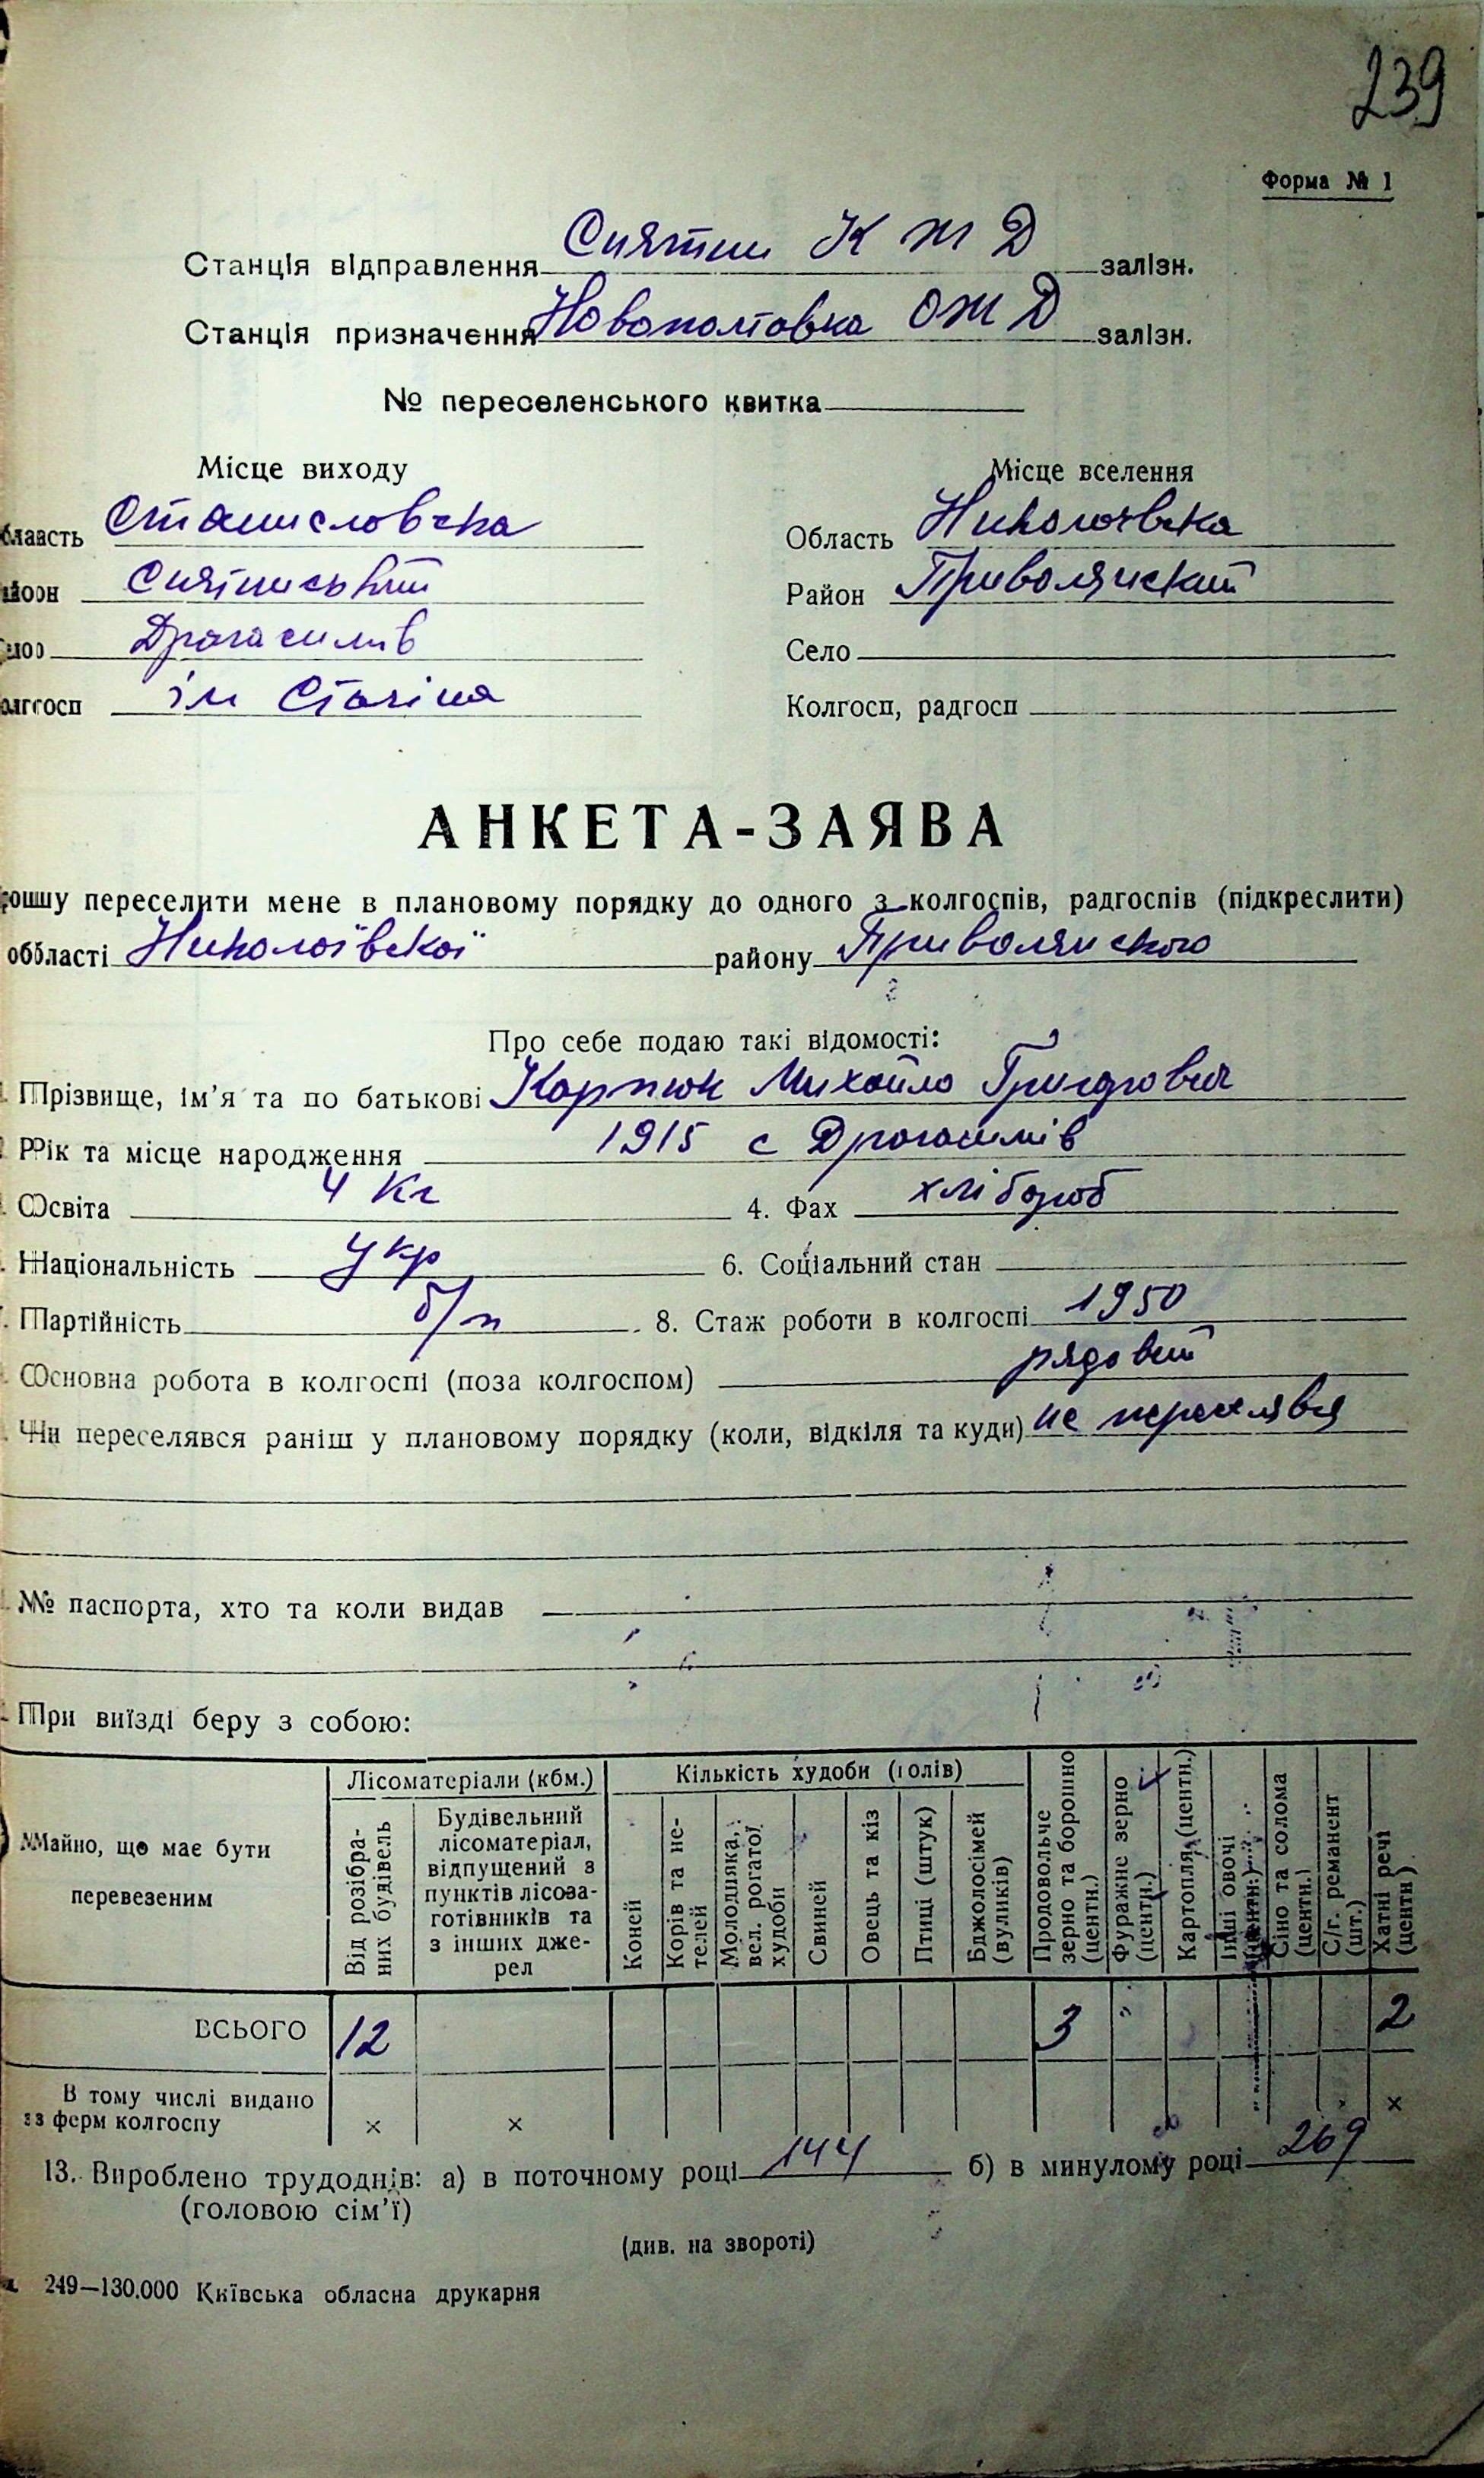 239
Форма № 1
Станція відправлення Снятин К Ж Д залізн.
Станція призначення Новополтовка ОЖД залізн.
№ переселенського квитка
Місце виходу Місце вселення
бласть Станиславська Область Николаївска
айон Снятинський Район Приволянский
ло Драгасимів Село
олгосп ім Сталіна Колгосп, радгосп
АНКЕТА-ЗАЯВА
ошу переселити мене в плановому порядку до одного з колгоспів, радгоспів (підкреслити)
області Николаївскої району Приволянского
Про себе подаю такі відомості:
Прізвище, ім'я та по батькові Карпюк Михайло Григорович
Рік та місце народження 1915 с Драгасимів
Освіта 4 кл 4. Фах хлібороб
Національність Укр 6. Соціальний стан
Партійність б/п 8. Стаж роботи в колгоспі 1950
Основна робота в колгоспі (поза колгоспом) рядовий
Чи переселявся раніш у плановому порядку (коли, відкіля та куди) не переселявся
№ паспорта, хто та коли видав
При виїзді беру з собою:
Майно, що має бути перевезеним
Лісоматеріали (кбм.)
Від розібраних будівель
Будівельний лісоматеріал, відпущений з пунктів лісоза-готівників та з інших дже-рел
Кількість худоби (голів)
Коней
Корів та не-телей
Молодняка, вел. рогатої худоби
Свиней
Овець та кіз
Птиці (штук)
Бджолосімей (вуликів)
Продовольче зерно та борошно (центн.)
Фуражне зерно (центн.)
Картопля (центн.)
Інші овочі (центн.)
Сіно та солома (центн.)
С/г. реманент (шт.)
Хатні речі (центн)
ВСЬОГО 12 3 2
В тому числі видано
з ферм колгоспу × × ×
13. Вироблено трудоднів: а) в поточному році 144 б) в минулому році 269
(головою сім'ї)
(див. на звороті)
249—130.000 Київська обласна друкарня